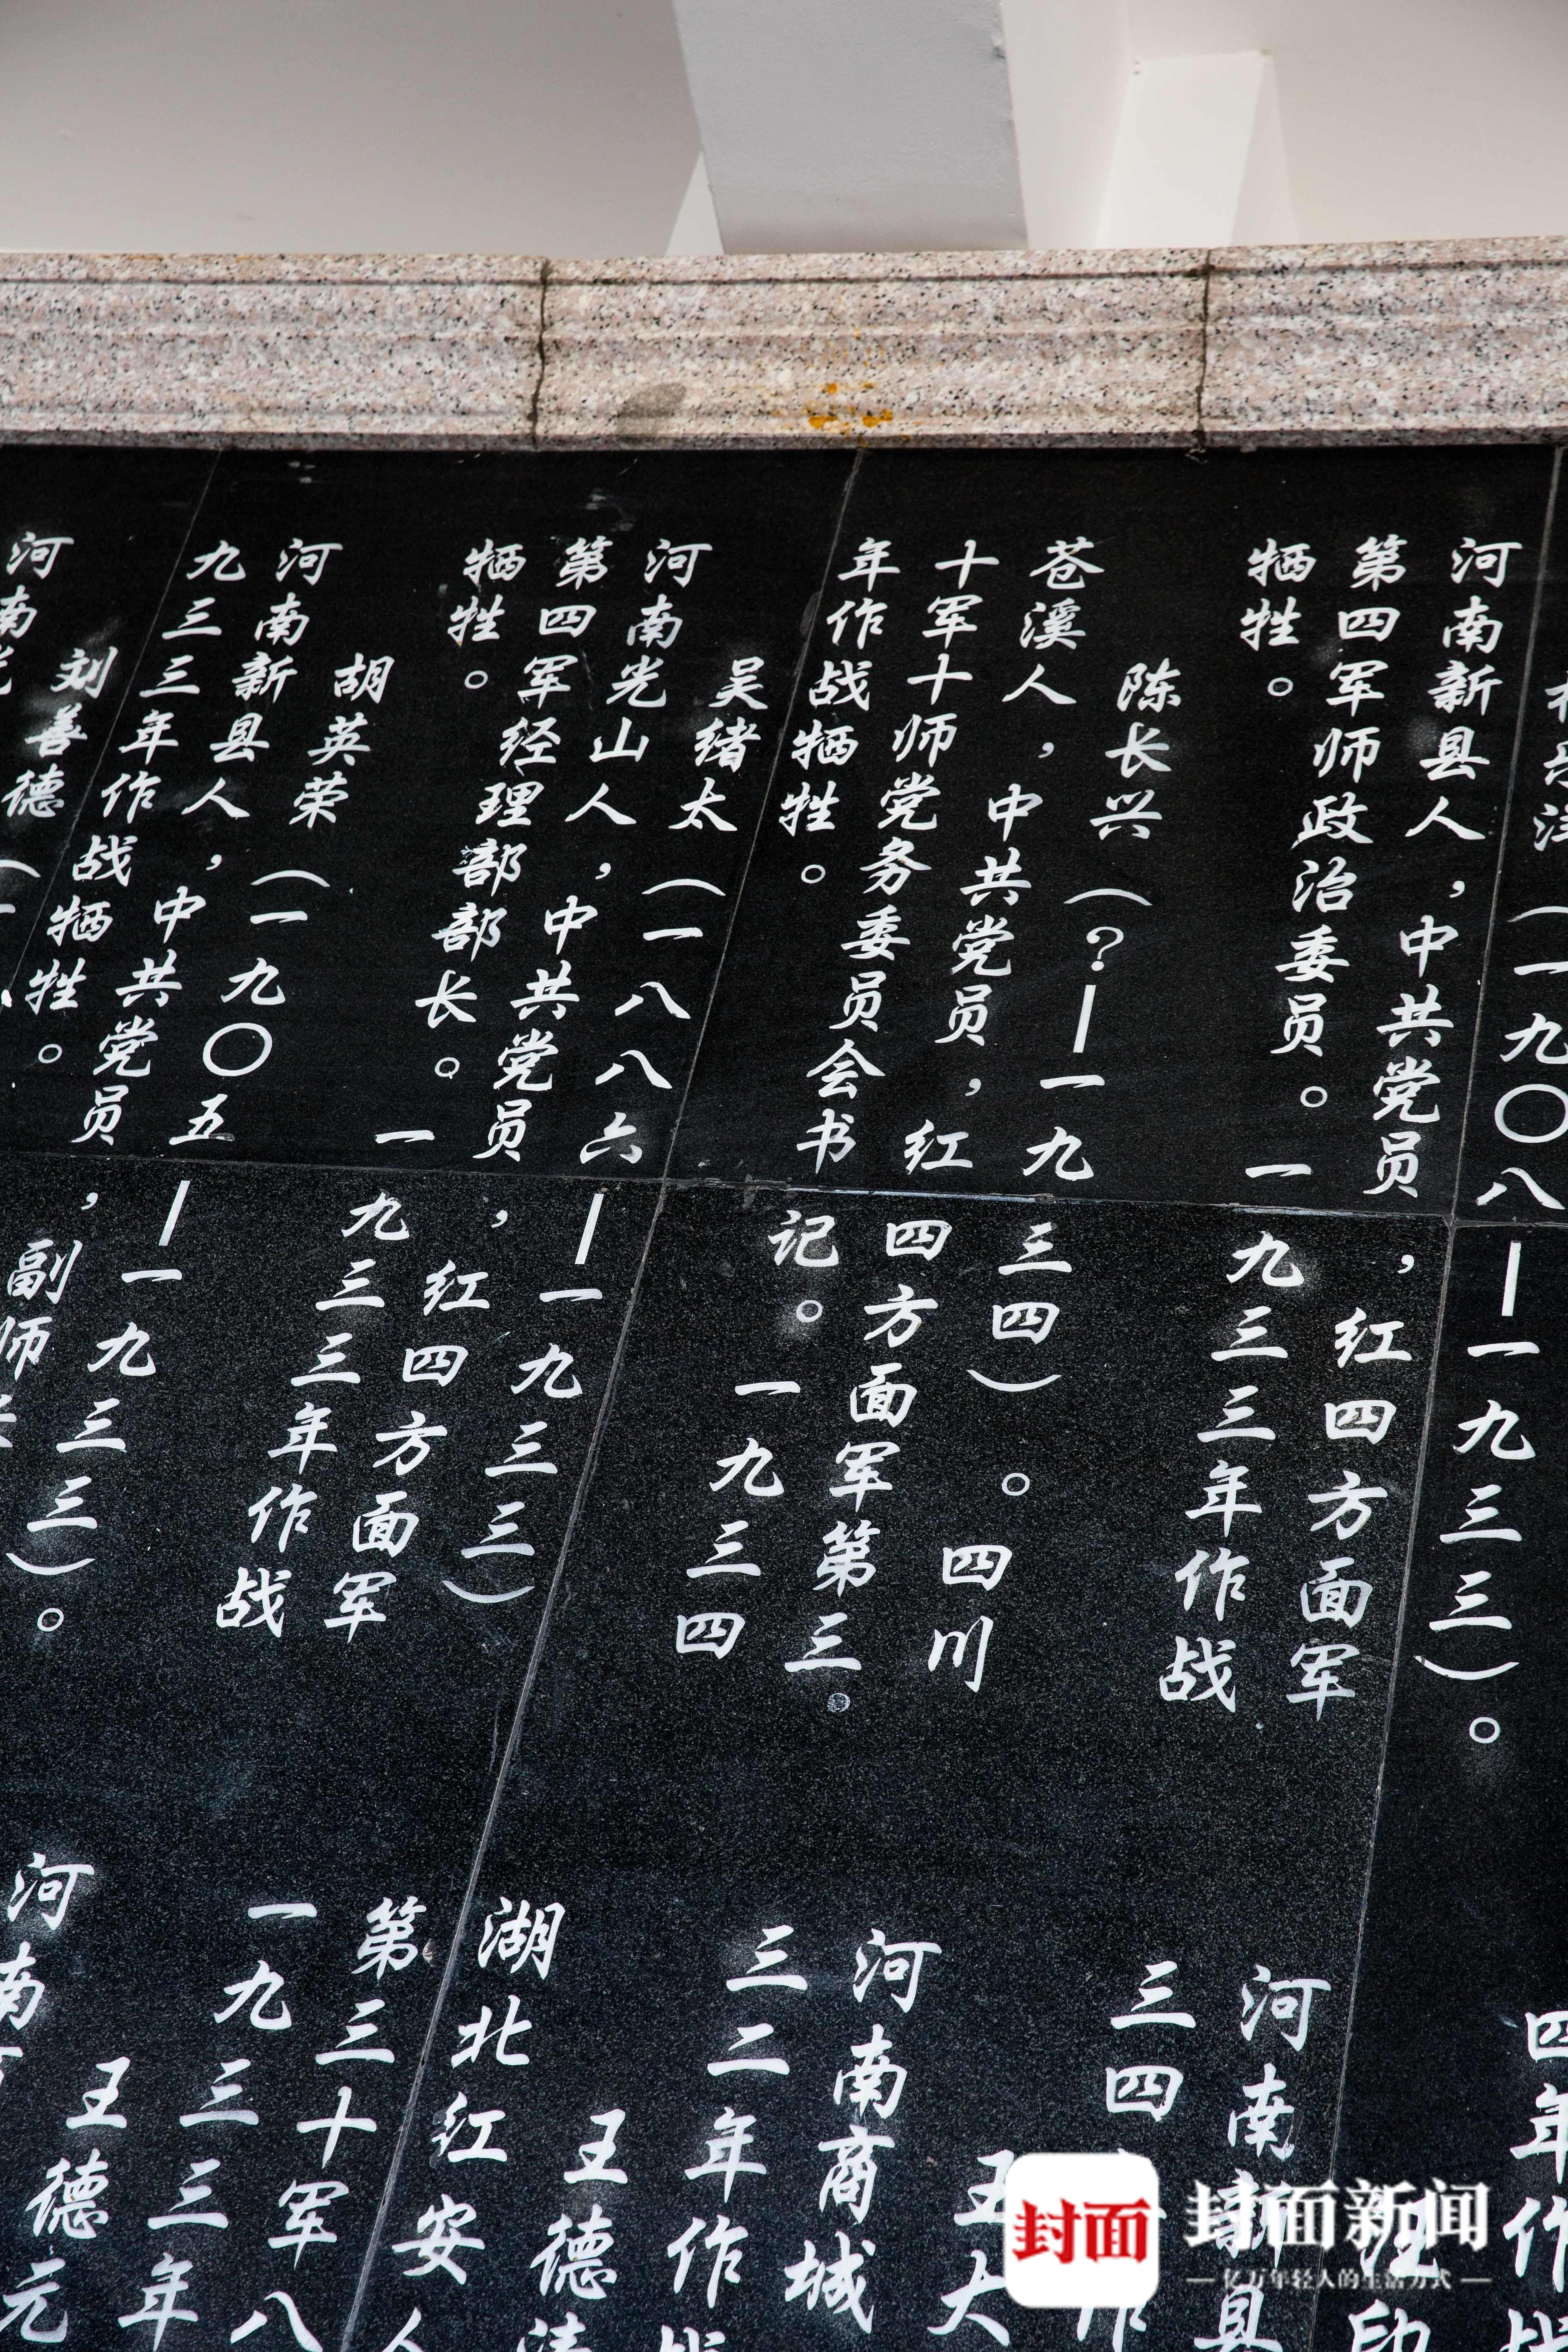 (一九〇八—一九三三)。
河南新县人,中共党员,红四方面军
第四军师政治委员。一九三三年作战
牺牲。
陈长兴(?—一九三四)。四川
苍溪人,中共党员,红四方面军第三。
十军十师党务委员会书记。一九三四
年作战牺牲。
吴绪太(一八八六—一九三三)
河南光山人,中共党员,红四方面军
第四军经理部部长。一九三三年作战
牺牲。
胡英荣(一九〇五—一九三三)。
河南新县人,中共党员,副师
九三三年作战牺牲。
刘善德(
河南
四年作战
河南新县
三四
王大
河南商城
三二年作战
王德
湖北红安人
第三十军八
一九三三年
王德元
河南
封面
封面新闻
亿万年轻人的生活方式